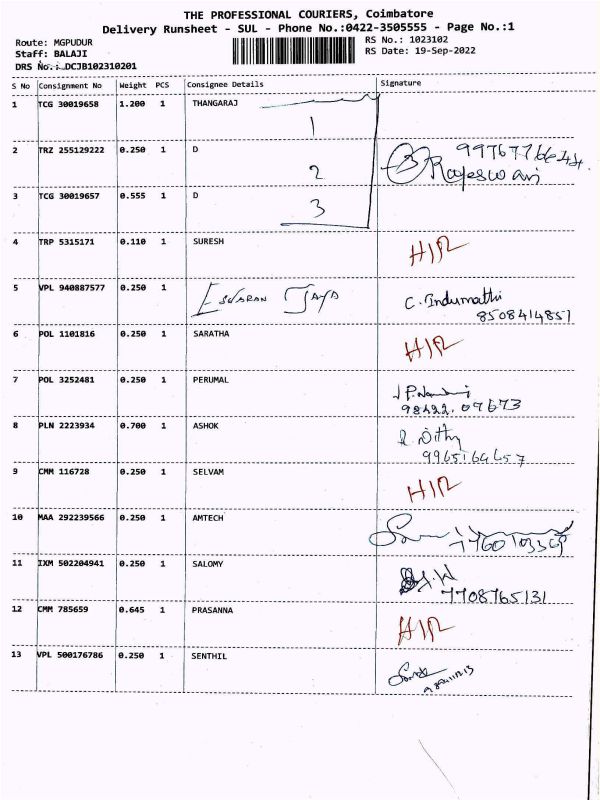 THE PROFESSIONAL COURIERS, Coimbatore
Delivery Runsheet - SUL - Phone No.:0422-3505555 - Page No.:1
Route: MGPUDUR
RS No.: 1023102
Staff: BALAJI
RS Date: 19-Sep-2022
DRS No.:.DCJB102310201
S No Consignment No Weight PCS Consignee Details Signature
1 TCG 30019658 1.200 1 THANGARAJ
1
2 TRZ 255129222 0.250 1 D
2
Rajeswari
3 TCG 30019657 0.555 1 D
3
4 TRP 5315171 0.110 1 SURESH HIR
5 VPL 940887577 0.250 1 ESWARAN JAYA C. Indumathi
8508414851
6 POL 1101816 0.250 1 SARATHA HIR
7 POL 3252481 0.250 1 PERUMAL
98422.09673
8 PLN 2223934 0.700 1 ASHOK
9 CMM 116728 0.250 1 SELVAM HIR
10 MAA 292239566 0.250 1 AMTECH
11 IXM 502204941 0.250 1 SALOMY
7708765131
12 CMM 785659 0.645 1 PRASANNA HIR
13 VPL 500176786 0.250 1 SENTHIL